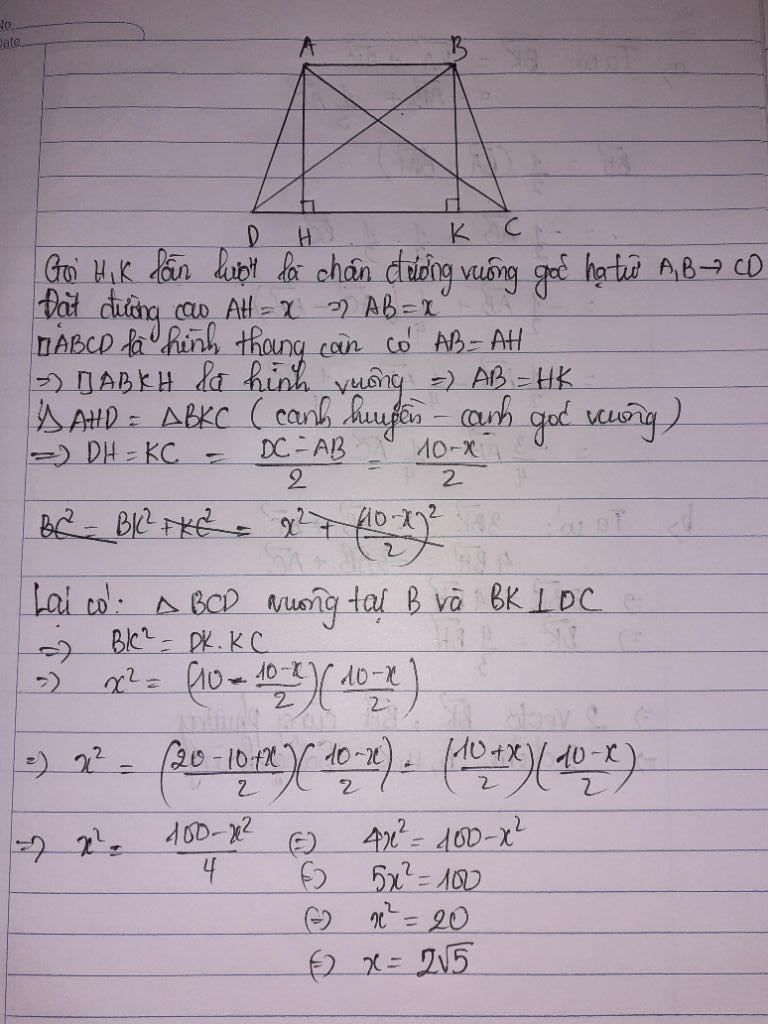 No
Date
A B
D H K C
Gọi H,K lần lượt là chân đường vuông góc hạ từ A,B → CD
Đặt đường cao AH = x => AB = x
□ABCD là hình thang cân có AB = AH
=> □ABKH là hình vuông => AB = HK
△AHD = △BKC (cạnh huyền - cạnh góc vuông)
=> DH = KC = (DC - AB)/2 = (10-x)/2
BC² = BK² + KC² = x² + ((10-x)/2)²
Lại có: △ BCD vuông tại B và BK ⊥ DC
=> BK² = DK.KC
=> x² = (10 - (10-x)/2)((10-x)/2)
=> x² = ((20-10+x)/2)((10-x)/2) = ((10+x)/2)((10-x)/2)
=> x² = (100-x²)/4 (=) 4x² = 100-x²
(=) 5x² = 100
(=) x² = 20
(=) x = 2√5